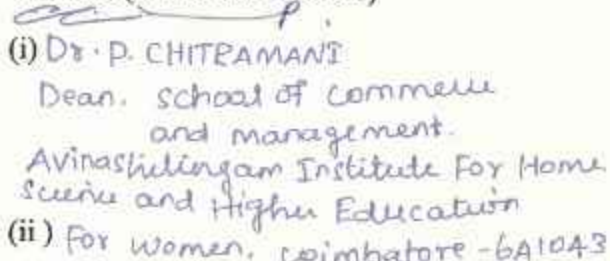 (i) Dr. P. CHITRAMANI
Dean. school of commerce
and management.
Avinashilingam Institute For Home
Science and Higher Education
(ii) For women, coimbatore - 641043